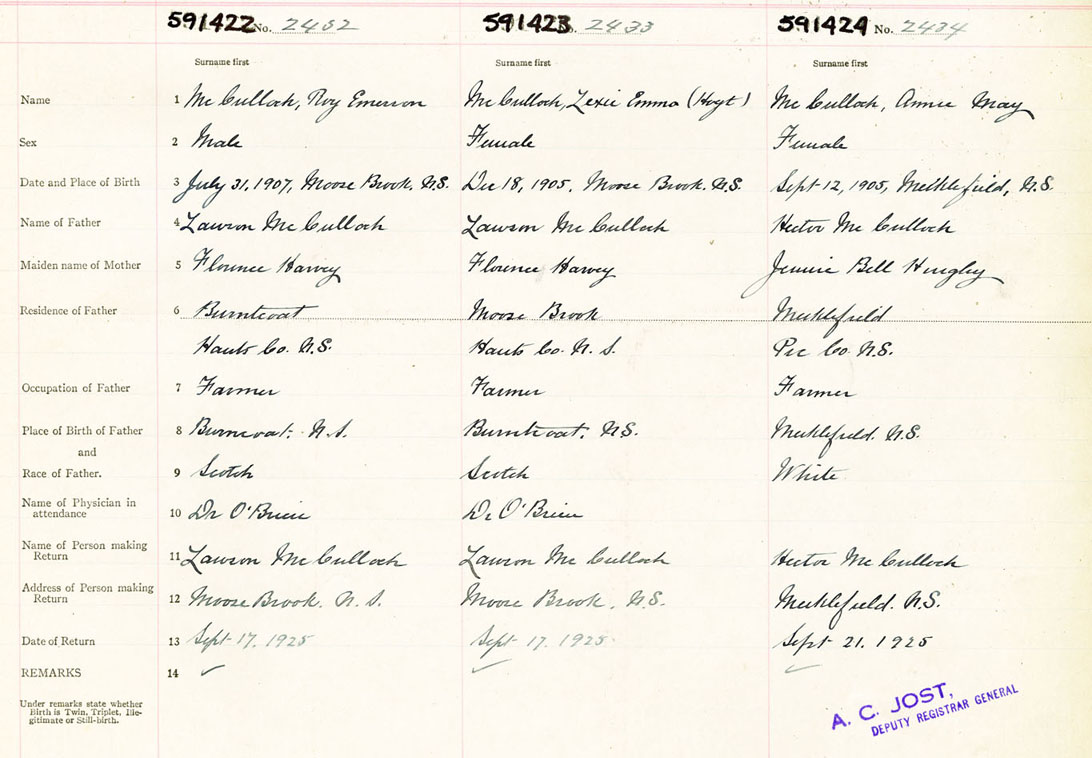 591422 No. 2432 591423 No. 2433 591424 No. 2434
Surname first Surname first Surname first
Name 1 Mc Culloch, Roy Emerson Mc Culloch, Lexie Emma (Hoyt) Mc Culloch, Annie May
Sex 2 Male Female Female
Date and Place of Birth 3 July 31, 1907, Moose Brook, N.S. Dec 18, 1905, Moose Brook. N.S. Sept 12, 1905, N.S.
Name of Father 4 Lawson Mc Culloch Lawson Mc Culloch Hector Mc Culloch
Maiden name of Mother 5 Florence Harvey Florence Harvey Jennie Bell Hingley
Residence of Father 6 Burntcoat Moose Brook Meiklefield
Hants Co. N.S. Hants Co. N. S. Pic Co. N.S.
Occupation of Father 7 Farmer Farmer Farmer
Place of Birth of Father 8 Burncoat. N.S. Burntcoat. N.S. Meiklefield. N.S.
and
Race of Father. 9 Scotch Scotch White
Name of Physician in
attendance 10 Dr O'Brien Dr O'Brien
Name of Person making
Return 11 Lawson Mc Culloch Lawson Mc Culloch Hector Mc Culloch
Address of Person making
Return 12 Moose Brook. N. S. Moose Brook. N.S. Meiklefield. N.S.
Date of Return 13 Sept 17. 1925 Sept 17. 1925 Sept 21. 1925
REMARKS 14
Under remarks state whether
Birth is Twin, Triplet, Ille-
gitimate or Still-birth.
A. C. JOST,
DEPUTY REGISTRAR GENERAL